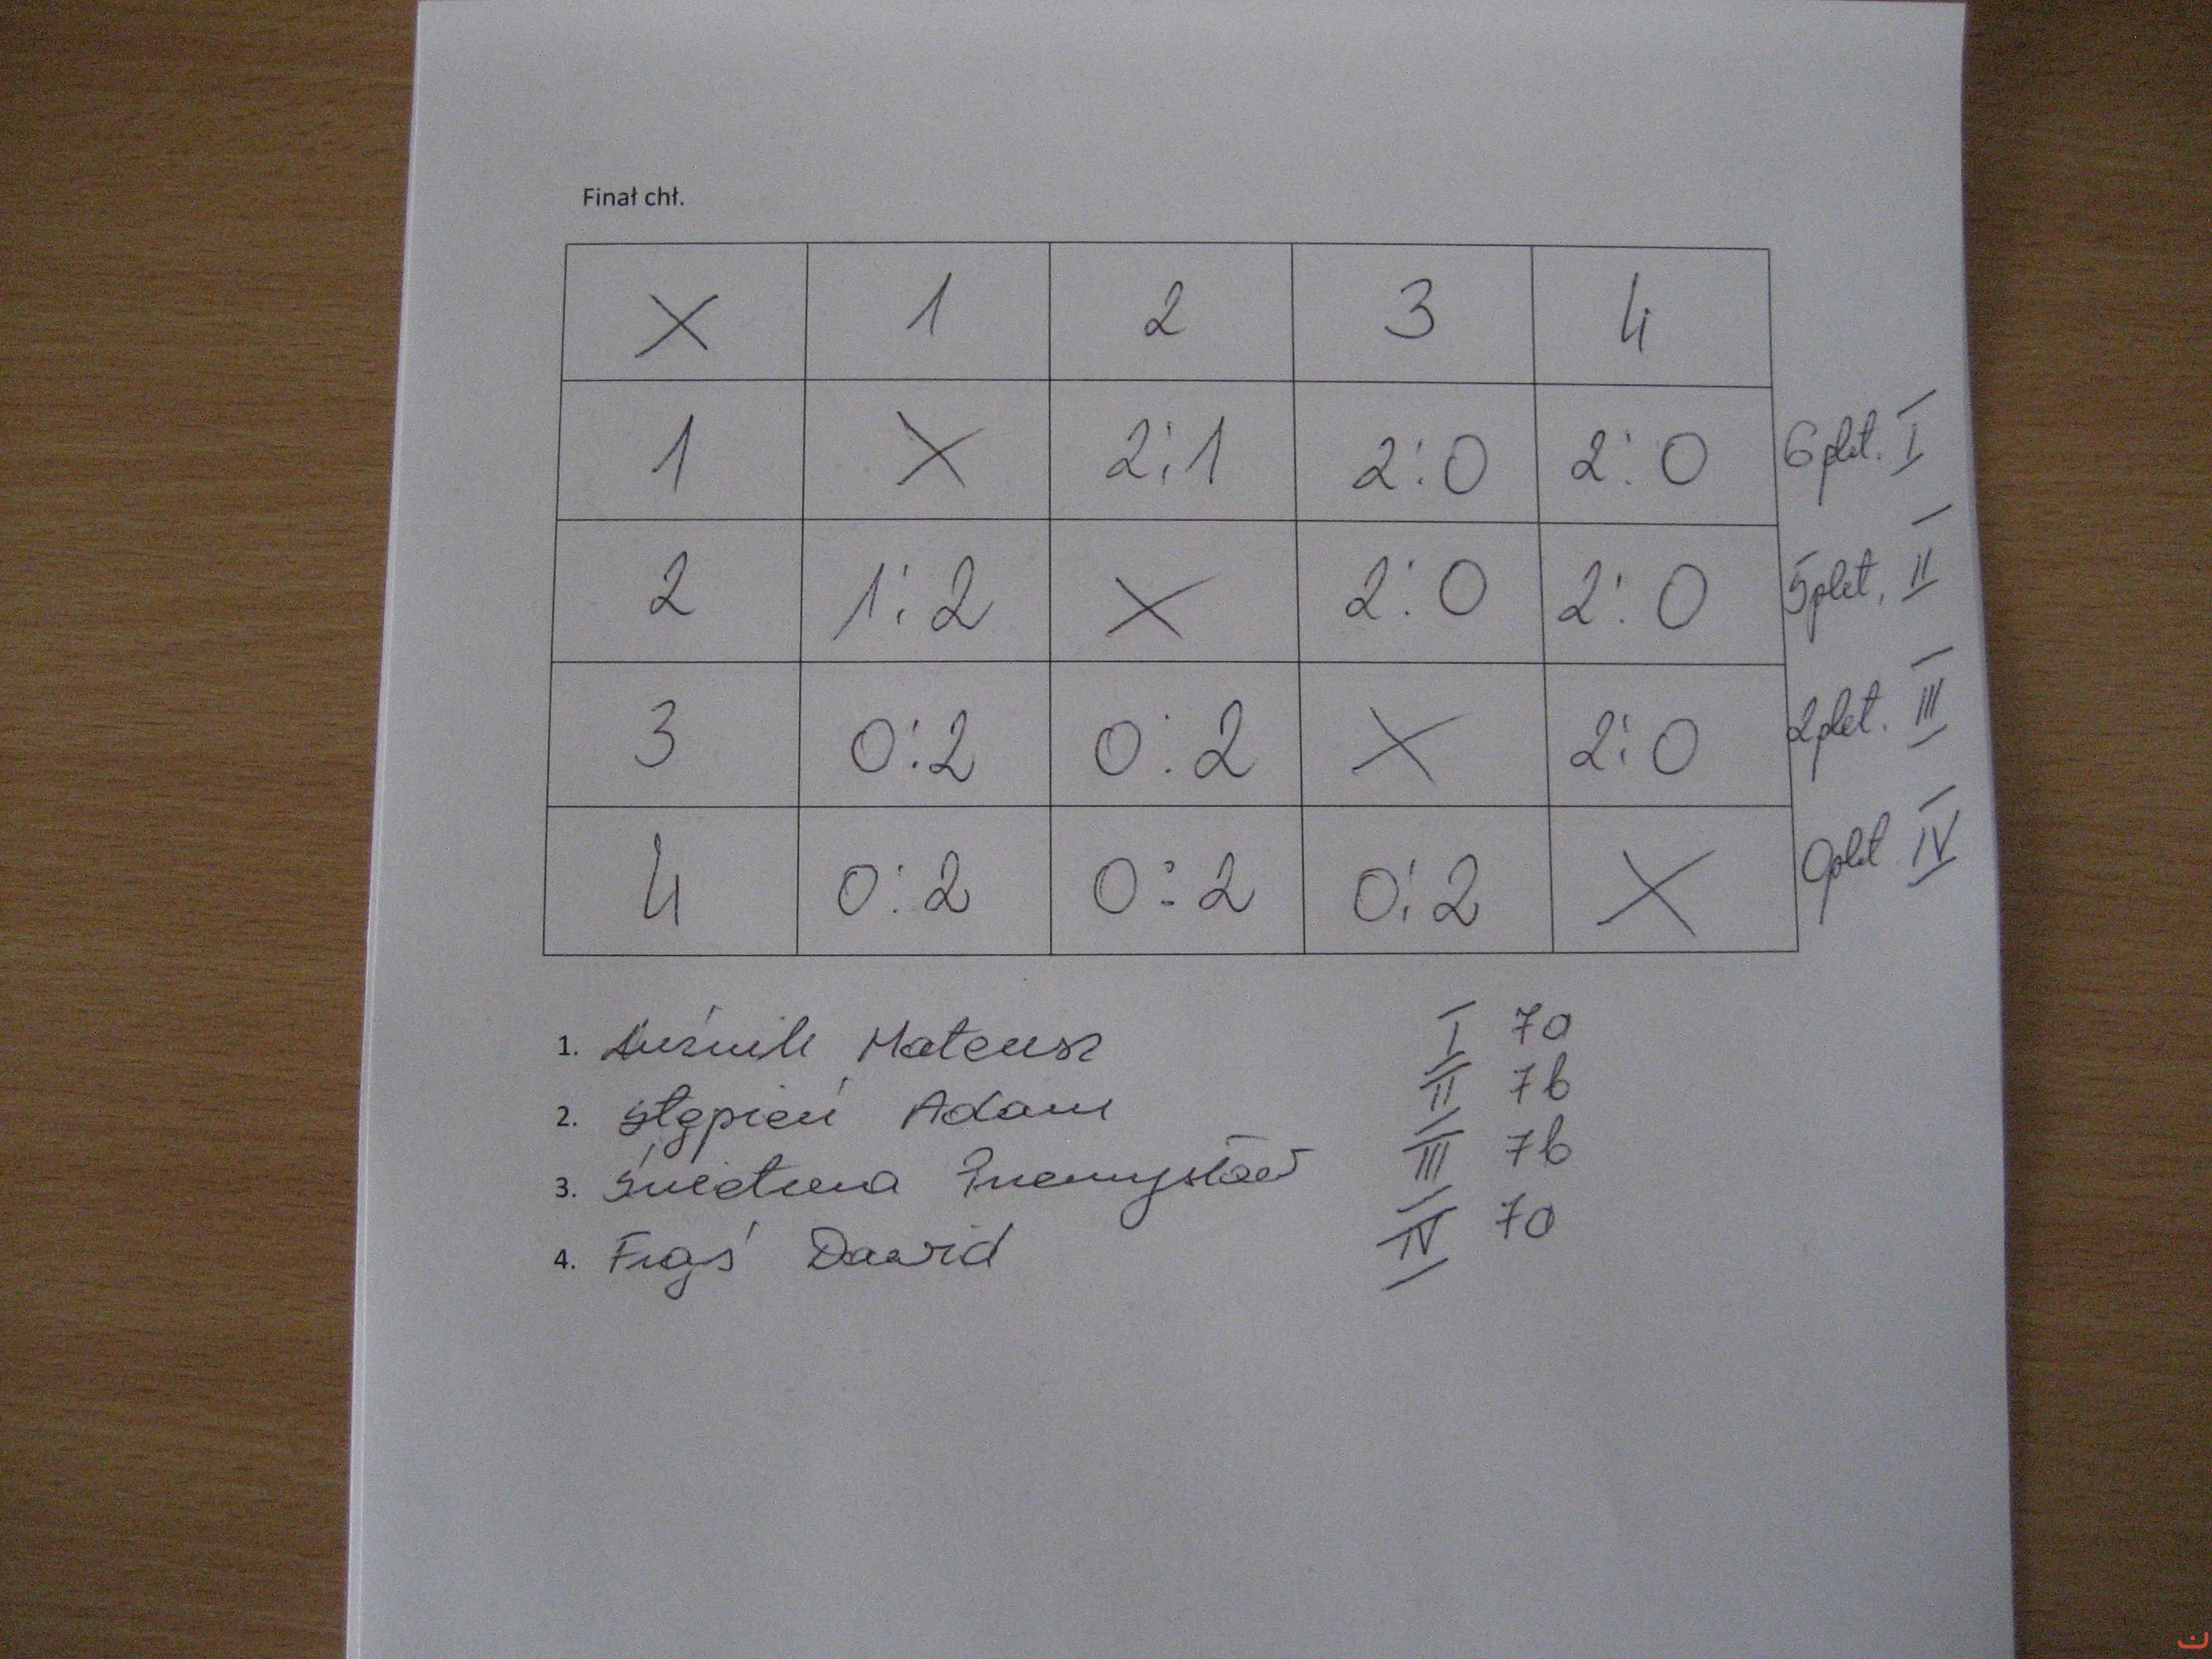 Finał chł.
X 1 2 3 4
1 X 2:1 2:0 2:0 6 pkt. I
2 1:2 X 2:0 2:0 5 pkt. II
3 0:2 0:2 X 2:0 2 pkt. III
4 0:2 0:2 0:2 X 0 pkt IV
1. Mateusz I 7a
2. Stępień Adam II 7b
3. Przemysław III 7b
4. Dawid IV 7a